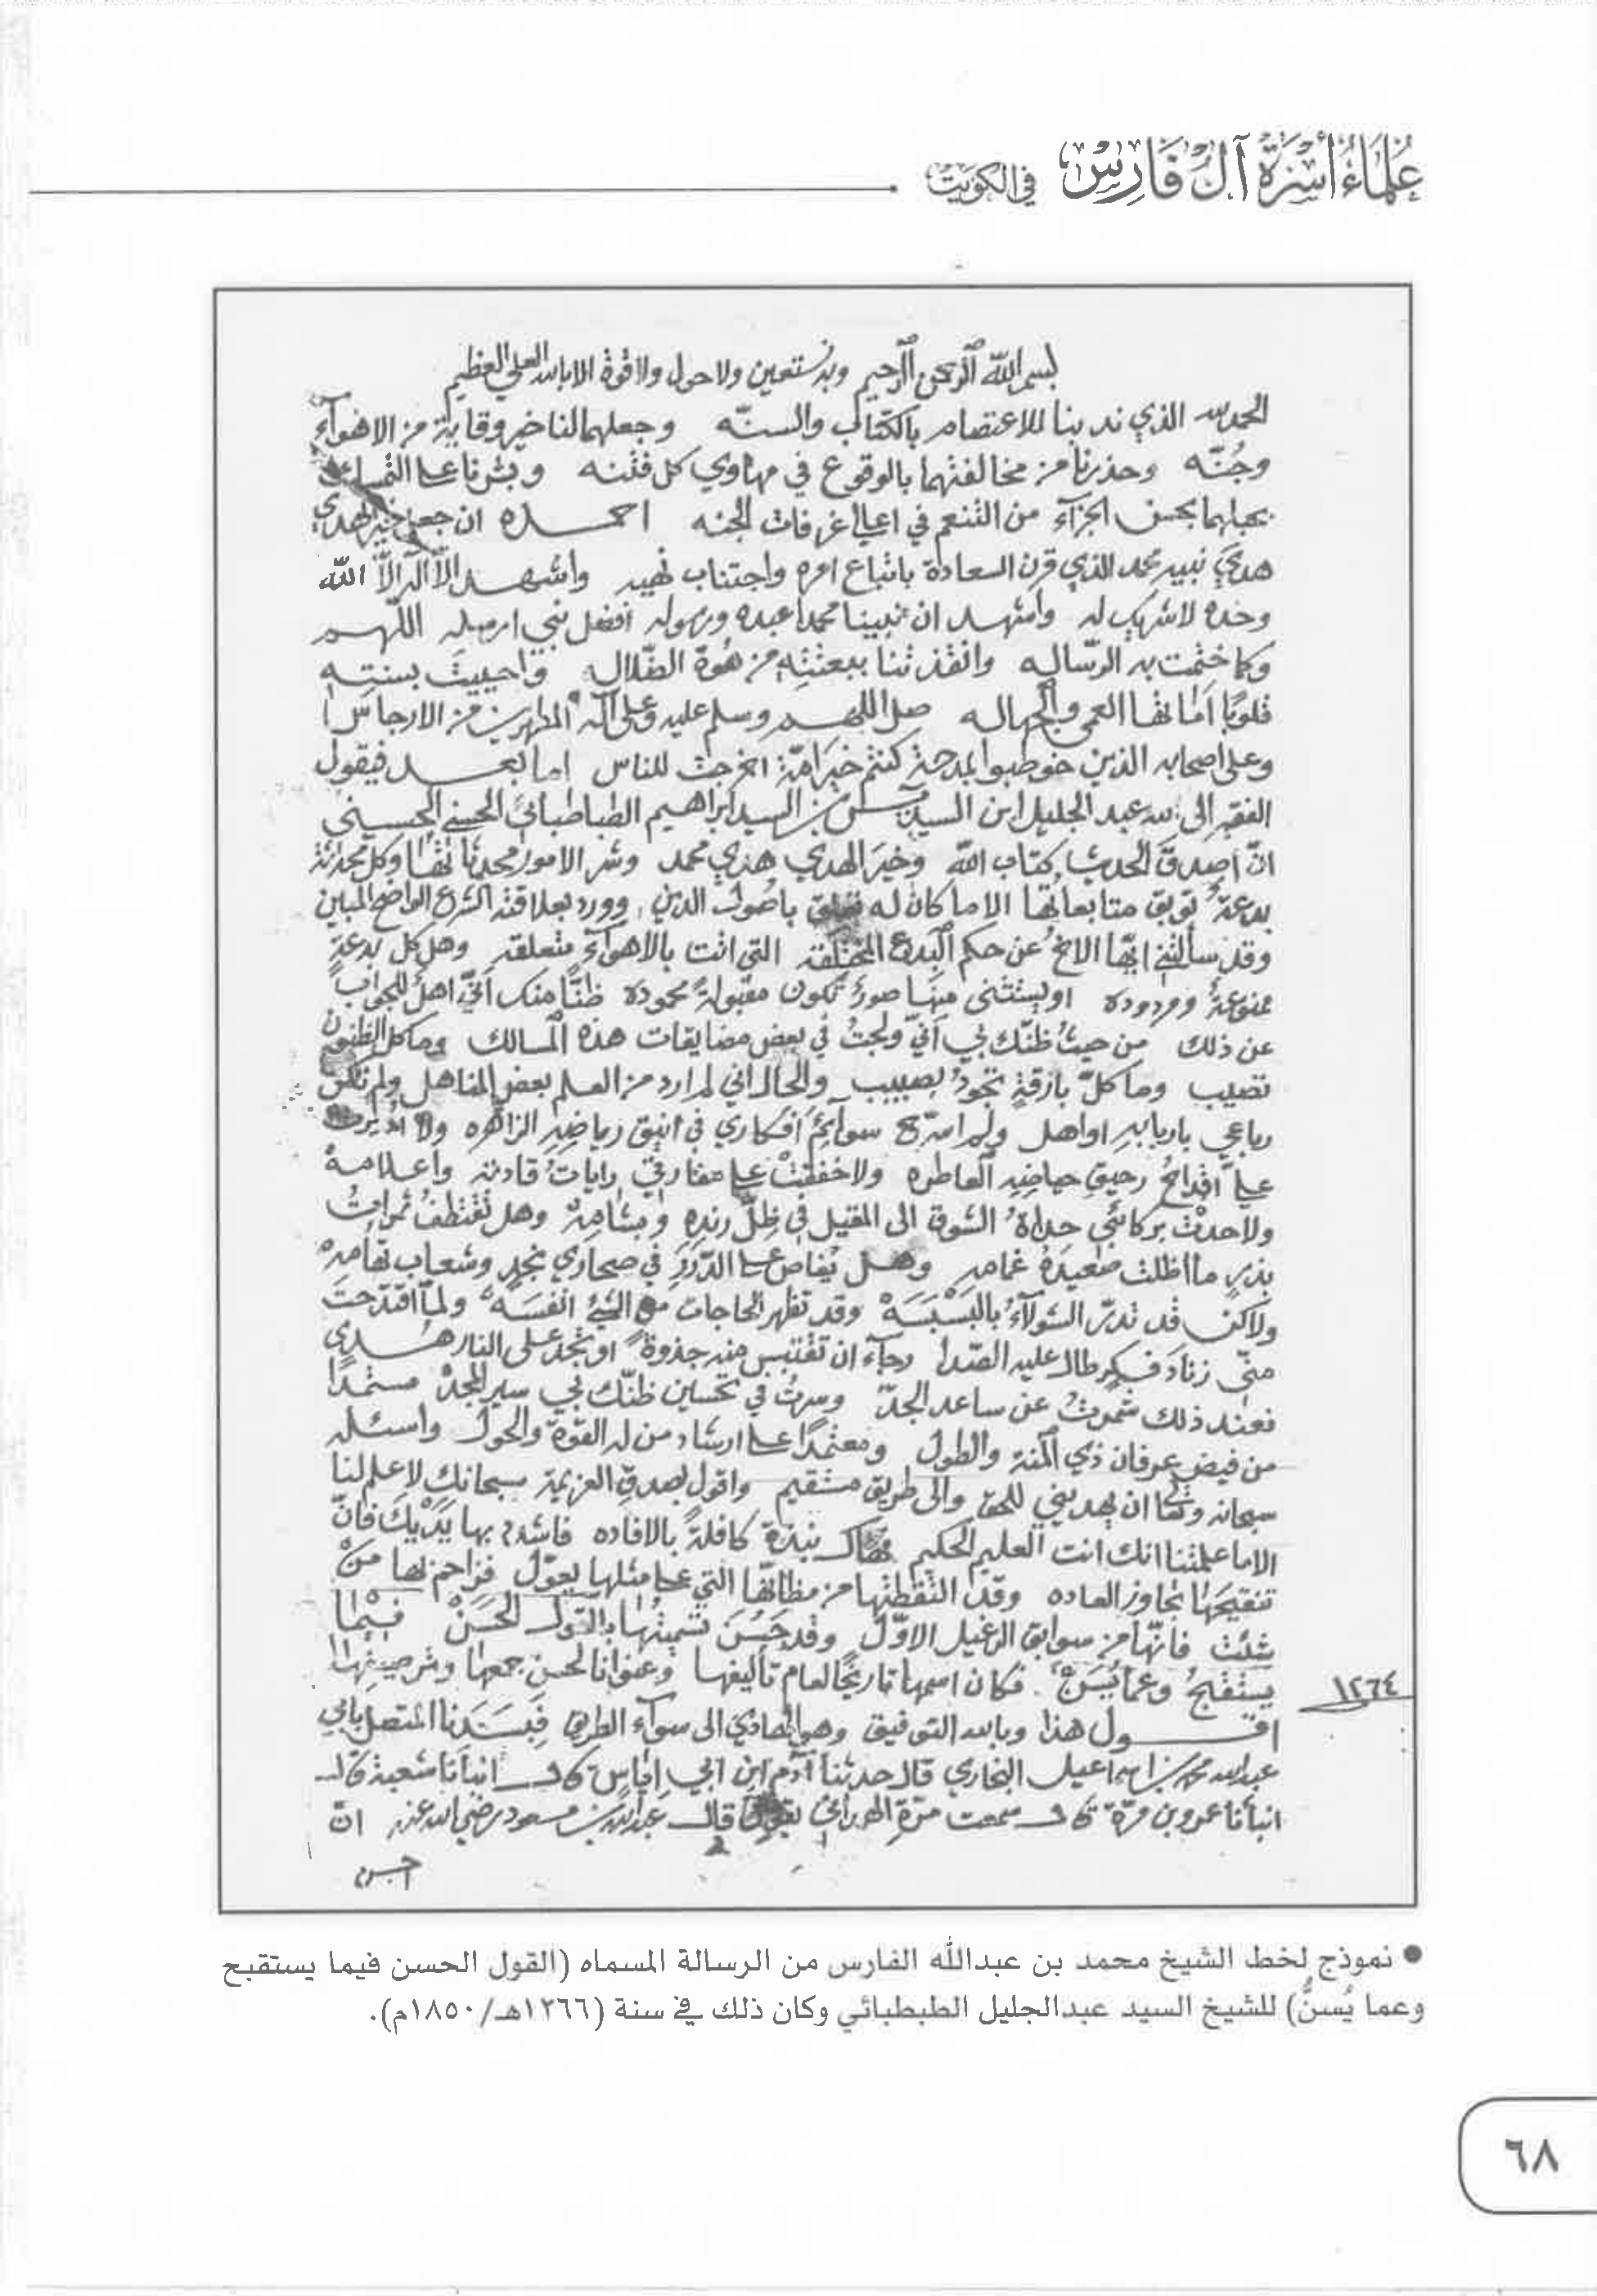 علماء أسرة آل فارس في الكويت
بسم الله الرحمن الرحيم وبه نستعين ولا حول ولا قوة الا بالله العلي العظيم
الحمد لله الذي ندبنا للاعتصام بالكتاب والسنه وجعلهما لنا خير وقاية من الاهوآء
وجُنّه وحذرنا من مخالفتهما بالوقوع في مهاوي كل فتنه وبشرنا على التمسك
بحبلهما بحسن الجزآء من التنعم في اعالي غرفات الجنه احمده ان جعل خير الهدي
هدي نبيه محمد الذي قرن السعادة باتباع امره واجتناب نهيه واشهد الاّ آله الاّ الله
وحده لا شريك له واشهد ان نبينا محمدا عبده ورسوله افضل نبي ارسله اللهم
وكما ختمت به الرساله وانقذتنا ببعثته من هُوة الضلاله واحييت بسنته
قلوبًا اماتها العمى والجهاله صل اللهم وسلم عليه وعلى آله المطهرين من الارجاس
وعلى اصحابه الذين خوطبوا لمدحة كنتم خير امّة اخرجت للناس اما بعد فيقول
الفقير الى الله عبد الجليل ابن السيد يس بن السيد ابراهيم الطباطبائي الحسني الحسيني
انّ اصدق الحديث كتاب الله وخير الهدي هدي محمد وشر الامور محدثاتها وكل محدثة
بدعةٌ توبق متابعاتها الا ما كان له تعلق باصول الدين وورد بعلاقته الشرع الواضح المبين
وقد سألتني ايّها الاخ عن حكم البدع المختلقة التي اتت بالاهوآء متعلقه وهل كل بدعةٍ
ممنوعةٌ ومردوده او يستثنى منها صورٌ تكون مقبولةً محموده ظنًّا منك انّي اهلٌ للجواب
عن ذلك من حيثُ ظنّك بي انّي ولجتُ في بعض مضايقات هذه المسالك وما كل الظنون
تصيب وما كلّ بارقةٍ تجودُ بصيب والحال اني لم ارد من العلم بعض المناهل ولم تكن
رباعي باربابه اواهل ولم اسرّح سوآئم افكاري في انيق رياضه الزاهره ولا اديرت
عليّ اقداحُ رحيق حياضه العاطره ولا خفقتْ على مفارقي راياتُ قادته واعلامهْ
ولا حدتْ بركائبي حداةُ الشوق الى المقيل في ظلّ رنده وبشامهْ وهل تقتطفُ ثمراتُ
بذرٍ ما اظلت صعيدهُ غمامه وهل يُغاص على الدّرَرِ في صحاري نجدٍ وشعاب تهامهْ
ولاكن قد تدرّ الشولآءُ بالبسبسهْ وقد تظهر الحاجات مع الشيء انفسه ولمّا اقتدحتَ
منّي زناد فكرٍ طال عليه الصّدا رجآء ان تقتبس منه جذوةً او تجد على النار هُدى
فعند ذلك شمرتُ عن ساعد الجدّ وسرتُ في تحسين ظنّك بي سير المجدّ مستمدًا
من فيض عرفان ذي المنة والطول ومعتمدًا على ارشاد من له القوّة والحول واسئله
سبحانه وتعا ان يهديني للحق والى طريق مستقيم واقول بصدق العزيمة سبحانك لا علم لنا
الا ما علمتنا انك انت العليم الحكيم فهاك نبذة كافلةً بالافاده فاشدد بها يَدَيْكَ فانّ
تنقيحها تجاوز العاده وقد التقطتها من مظانّها التي على مثلها يعوّل فزاحم بها منْ
شئت فانّها من سوابق الرعيل الاوّل وقد حَسُنَ تسميتُها بالقول الحَسَنْ فيما
يستقبحُ وعما يُسَنّ فكان اسمها تاريخًا لعام تأليفها وعنوانا لحسن جمعها وترصيفها
١٢٦٤
اقول هذا وبالله التوفيق وهو الهادي الى سوآء الطريق فبسندنا المتصل بابي
عبد الله محمد بن اسماعيل البخاري قال حدثنا آدم ابن ابي اياس قال انبأنا شعبة قال
انبأنا عمرو بن مرّة قال سمعت مرّة الهمداني يقول قال عبد الله بن مسعود رضي الله عنه ان
احسن
● نموذج لخط الشيخ محمد بن عبدالله الفارس من الرسالة المسماه (القول الحسن فيما يستقبح
وعما يُسنُّ) للشيخ السيد عبدالجليل الطبطبائي وكان ذلك في سنة (١٢٦٦هـ/١٨٥٠م).
٦٨